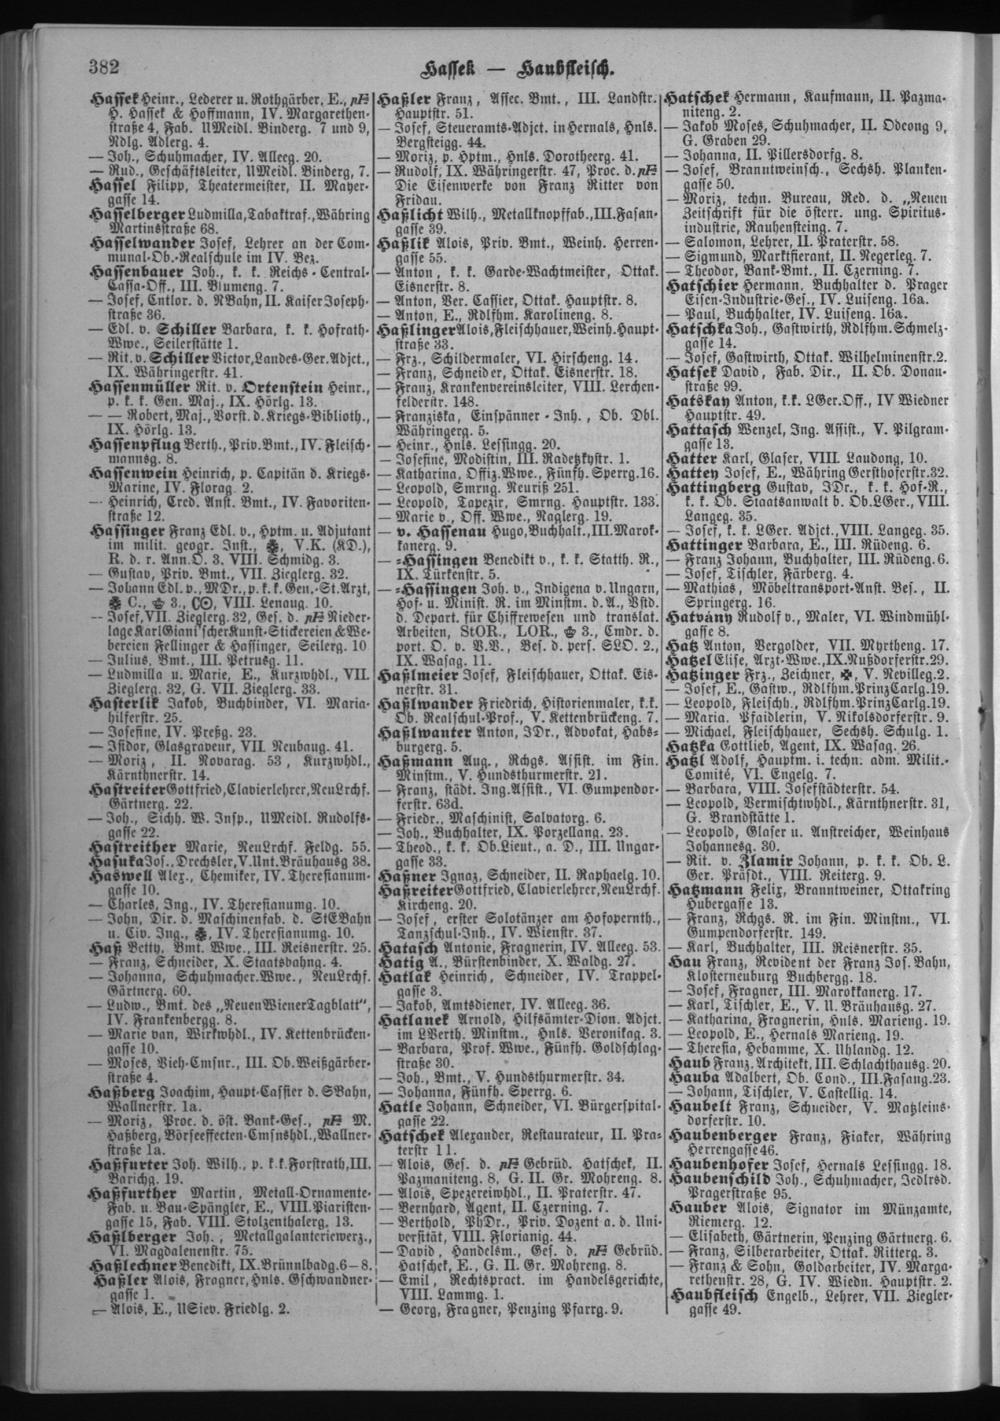 382
Hassek — Haubfleisch.
Hassek Heinr., Lederer u. Rothgärber, E.,
H. Hassek & Hoffmann, IV. Margarethen-
straße 4, Fab. UMeidl. Binderg. 7 und 9,
Ndlg. Adlerg. 4.
— Joh., Schuhmacher, IV. Alleeg. 20.
— Rud., Geschäftsleiter, UMeidl. Binderg, 7.
Hassel Filipp, Theatermeister, II. Mayer-
gasse 14.
Hasselberger Ludmilla, Tabaktraf., Währing
Martinsstraße 68.
Hasselwander Josef, Lehrer an der Com-
munal-Ob.-Realschule im IV. Bez.
Hassenbauer Joh., k. k. Reichs-Central-
Cassa-Off., III. Blumeng. 7.
— Josef, Cntlor. d. NBahn, II. Kaiser Joseph-
straße 36.
— Edl. v. Schiller Barbara, k. k. Hofrath-
Wwe., Seilerstätte 1.
— Rit. v. Schiller Victor, Landes-Ger. Adjct.,
IX. Währingerstr. 41.
Hassenmüller Rit. v. Ortenstein Heinr.,
p. k. k. Gen. Maj., IX. Hörlg. 13.
— — Robert, Maj., Vorst. d. Kriegs-Biblioth.,
IX. Hörlg. 13.
Hassenpflug Berth., Priv. Bmt., IV. Fleisch-
mannsg. 8.
Hassenwein Heinrich, p. Capitän d. Kriegs-
Marine, IV. Florag. 2.
— Heinrich, Cred. Anst. Bmt., IV. Favoriten-
straße 12.
Hassinger Franz Edl. v., Hptm. u. Adjutant
im milit. geogr. Inst., V.K. (KD.),
R. d. r. Ann. O. 3. VIII. Schmidg. 3.
— Gustav, Priv. Bmt., VII. Zieglerg. 32.
— Johann Edl. v., MDr., p. k. k. Gen.-St. Arzt,
C., 3., VIII. Lenaug. 10.
— Josef, VII. Zieglerg. 32, Ges. d. Nieder-
lage Karl Giani'scher Kunst-Stickereien & We-
bereien Fellinger & Hassinger, Seilerg. 10
— Julius, Bmt., III. Petrusg. 11.
— Ludmilla u. Marie, E., Kurzwhdl., VII.
Zieglerg. 32, G. VII. Zieglerg. 33.
Hasterlik Jakob, Buchbinder, VI. Maria-
hilferstr. 25.
— Josefine, IV. Preßg. 23.
— Isidor, Glasgraveur, VII. Neubaug. 41.
— Moriz, II. Novarag. 53, Kurzwhdl.,
Kärnthnerstr. 14.
Hastreiter Gottfried, Clavierlehrer, NeuLrchf.
Gärtnerg. 22.
— Joh., Sichh. W. Insp., UMeidl. Rudolfs-
gasse 22.
Hastreither Marie, NeuLrchf. Feldg. 55.
Hasuka Jos., Drechsler, V. Unt. Bräuhausg 38.
Haswell Alex., Chemiker, IV. Theresianum-
gasse 10.
— Charles, Ing., IV. Theresianumg. 10.
— John, Dir. d. Maschinenfab. d. StEBahn
u. Civ. Ing., IV. Theresianumg. 10.
Haß Betty, Bmt. Wwe., III. Reisnerstr. 25.
— Franz, Schneider, X. Staatsbahng. 4.
— Johanna, Schuhmacher. Wwe., NeuLrchf.
Gärtnerg. 60.
— Ludw., Bmt. des „Neuen Wiener Tagblatt",
IV. Frankenbergg. 8.
— Marie van, Wirkwhdl., IV. Kettenbrücken-
gasse 10.
— Moses, Vieh-Cmsnr., III. Ob. Weißgärber-
straße 4.
Haßberg Joachim, Haupt-Cassier d. SBahn,
Wallnerstr. 1a.
— Moriz, Proc. d. öst. Bank-Ges., M.
Haßberg, Börseeffecten-Cmsnshdl., Wallner-
straße 1a.
Haßfurter Joh. Wilh., p. k. k. Forstrath, III.
Barichg. 19.
Haßfurther Martin, Metall-Ornamente-
Fab. u. Bau-Spängler, E., VIII. Piaristen-
gasse 15, Fab. VIII. Stolzenthalerg. 13.
Haßlberger Joh., Metallgalanteriewerz.,
VI. Magdalenenstr. 75.
Haßlechner Benedikt, IX. Brünnlbadg. 6–8.
Haßler Alois, Fragner, Hnls. Gschwandner-
gasse 1.
— Alois, E., USiev. Friedlg. 2.
Haßler Franz, Assec. Bmt., III. Landstr.
Hauptstr. 51.
— Josef, Steueramts-Adjct. in Hernals, Hnls.
Bergsteigg. 44.
— Moriz, p. Hptm., Hnls. Dorotheerg. 41.
— Rudolf, IX. Währingerstr. 47, Proc. d.
Die Eisenwerke von Franz Ritter von
Fridau.
Haßlicht Wilh., Metallknopffab., III. Fasan-
gasse 39.
Haßlik Alois, Priv. Bmt., Weinh. Herren-
gasse 55.
— Anton, k. k. Garde-Wachtmeister, Ottak.
Eisnerstr. 8.
— Anton, Ver. Cassier, Ottak. Hauptstr. 8.
— Anton, E., Rdlfhm. Karolineng. 8.
Haßlinger Alois, Fleischhauer, Weinh. Haupt-
straße 33.
— Frz., Schildermaler, VI. Hirscheng. 14.
— Franz, Schneider, Ottak. Eisnerstr. 18.
— Franz, Krankenvereinsleiter, VIII. Lerchen-
felderstr. 148.
— Franziska, Einspänner-Inh., Ob. Dbl.
Währingerg. 5.
— Heinr., Hnls. Lessingg. 20.
— Josefine, Modistin, III. Radetzkystr. 1.
— Katharina, Offiz. Wwe., Fünfh. Sperrg. 16.
— Leopold, Smrng. Neuriß 251.
— Leopold, Tapezir, Smrng. Hauptstr. 133.
— Marie v., Off. Wwe., Naglerg. 19.
— v. Hassenau Hugo, Buchhalt., III. Marok-
kanerg. 9.
— =Hassingen Benedikt v., k. k. Statth. R.,
IX. Türkenstr. 5.
— =Hassingen Joh. v., Indigena v. Ungarn,
Hof- u. Minist. R. im Minstm. d. A., Vstd.
d. Depart. für Chiffrewesen und translat.
Arbeiten, StOR., LOR., 3., Cmdr. d.
port. O. v. V.V., Bes. d. pers. SLO. 2.,
IX. Wasag. 11.
Haßlmeier Josef, Fleischhauer, Ottak. Eis-
nerstr. 31.
Haßlwander Friedrich, Historienmaler, k. k.
Ob. Realschul-Prof., V. Kettenbrückeng. 7.
Haßlwanter Anton, JDr., Advokat, Habs-
burgerg. 5.
Haßmann Aug., Rchgs. Assist. im Fin.
Minstm., V. Hundsthurmerstr. 21.
— Franz, städt. Ing. Assist., VI. Gumpendor-
ferstr. 63d.
— Friedr., Maschinist, Salvatorg. 6.
— Joh., Buchhalter, IX. Porzellang. 23.
— Theod., k. k. Ob. Lieut., a. D., III. Ungar-
gasse 33.
Haßner Ignaz, Schneider, II. Raphaelg. 10.
Haßreiter Gottfried, Clavierlehrer, NeuLrchf.
Kircheng. 20.
— Josef, erster Solotänzer am Hofopernth.,
Tanzschul-Inh., IV. Wienstr. 37.
Hatasch Antonie, Fragnerin, IV. Alleeg. 53.
Hatig A., Bürstenbinder, X. Waldg. 27.
Hatlak Heinrich, Schneider, IV. Trappel-
gasse 3.
— Jakob, Amtsdiener, IV. Alleeg. 36.
Hatlanek Arnold, Hilfsämter-Dion. Adjct.
im LVerth. Minstm., Hnls. Veronikag. 3.
— Barbara, Prof. Wwe., Fünfh. Goldschlag-
straße 30.
— Joh., Bmt., V. Hundsthurmerstr. 34.
— Johanna, Fünfh. Sperrg. 6.
Hatle Johann, Schneider, VI. Bürgerspital-
gasse 22.
Hatschek Alexander, Restaurateur, II. Pra-
terstr 11.
— Alois, Ges. d. Gebrüd. Hatschek, II.
Pazmaniteng. 8, G. II. Gr. Mohreng. 8.
— Alois, Spezereiwhdl., II. Praterstr. 47.
— Bernhard, Agent, II. Czerning. 7.
— Berthold, PhDr., Priv. Dozent a. d. Uni-
versität, VIII. Florianig. 44.
— David, Handelsm., Ges. d. Gebrüd.
Hatschek, E., G. II. Gr. Mohreng. 8.
— Emil, Rechtspract. im Handelsgerichte,
VIII. Lammg. 1.
— Georg, Fragner, Penzing Pfarrg. 9.
Hatschek Hermann, Kaufmann, II. Pazma-
niteng. 2.
— Jakob Moses, Schuhmacher, II. Odeong 9,
G. Graben 29.
— Johanna, II. Pillersdorfg. 8.
— Josef, Branntweinsch., Sechsh. Planken-
gasse 50.
— Moriz, techn. Bureau, Red. d. „Neuen
Zeitschrift für die österr. ung. Spiritus-
industrie, Rauhensteing. 7.
— Salomon, Lehrer, II. Praterstr. 58.
— Sigmund, Marktfierant, II. Negerleg. 7.
— Theodor, Bank-Bmt., II. Czerning. 7.
Hatschier Hermann, Buchhalter d. Prager
Eisen-Industrie-Ges., IV. Luiseng. 16a.
— Paul, Buchhalter, IV. Luiseng. 16a.
Hatschka Joh., Gastwirth, Rdlfhm. Schmelz-
gasse 14.
— Josef, Gastwirth, Ottak. Wilhelminenstr. 2.
Hatsek David, Fab. Dir., II. Ob. Donau-
straße 99.
Hatskay Anton, k.k. LGer. Off., IV Wiedner
Hauptstr. 49.
Hattasch Wenzel, Ing. Assist., V. Pilgram-
gasse 13.
Hatter Karl, Glaser, VIII. Laudong, 10.
Hattey Josef, E., Währing Gersthoferstr. 32.
Hattingberg Gustav, JDr., k. k. Hof-R.,
k. k. Ob. Staatsanwalt b. Ob. LGer., VIII.
Langeg. 35.
— Josef, k. k. LGer. Adjct., VIII. Langeg. 35.
Hattinger Barbara, E., III. Rüdeng. 6.
— Franz Johann, Buchhalter, III. Rüdeng. 6.
— Josef, Tischler, Färberg. 4.
— Mathias, Möbeltransport-Anst. Bes., II.
Springerg. 16.
Hatvány Rudolf v., Maler, VI. Windmühl-
gasse 8.
Hatz Anton, Vergolder, VII. Myrtheng. 17.
Hatzel Elise, Arzt-Wwe., IX. Nußdorferstr. 29.
Hatzinger Frz., Zeichner, V. Nevilleg. 2.
— Josef, E., Gastw., Rdlfhm. Prinz Carlg. 19.
— Leopold, Fleischh., Rdlfhm. Prinz Carlg. 19.
— Maria. Pfaidlerin, V. Nikolsdorferstr. 9.
— Michael, Fleischhauer, Sechsh. Schulg. 1.
Hatzka Gottlieb, Agent, IX. Wasag. 26.
Hatzl Adolf, Hauptm. i. techn. adm. Milit.-
Comité, VI. Engelg. 7.
— Barbara, VIII. Josefstädterstr. 54.
— Leopold, Vermischtwhdl., Kärnthnerstr. 31,
G. Brandstätte 1.
— Leopold, Glaser u. Anstreicher, Weinhaus
Johannesg. 30.
— Rit. v. Zlamir Johann, p. k. k. Ob. L.
Ger. Präsdt., VIII. Reiterg. 9.
Hatzmann Felix, Branntweiner, Ottakring
Hubergasse 13.
— Franz, Rchgs. R. im Fin. Minstm., VI.
Gumpendorferstr. 149.
— Karl, Buchhalter, III. Reisnerstr. 35.
Hau Franz, Revident der Franz Jos. Bahn,
Klosterneuburg Buchbergg. 18.
— Josef, Fragner, III. Marokkanerg. 17.
— Karl, Tischler, E., V. U. Bräuhausg. 27.
— Katharina, Fragnerin, Hnls. Marieng. 19.
— Leopold, E., Hernals Marieng. 19.
— Theresia, Hebamme, X. Uhlandg. 12.
Haub Franz, Architekt, III. Schlachthausg. 20.
Hauba Adalbert, Ob. Cond., III. Fasang. 23.
— Johann, Tischler, V. Castellig. 14.
Haubelt Franz, Schneider, V. Matzleins-
dorferstr. 10.
Haubenberger Franz, Fiaker, Währing
Herrengasse 46.
Haubenhofer Josef, Hernals Lessingg. 18.
Haubenschild Joh., Schuhmacher, Jedlrsd.
Pragerstraße 95.
Hauber Alois, Signator im Münzamte,
Riemerg. 12.
— Elisabeth, Gärtnerin, Penzing Gärtnerg. 6.
— Franz, Silberarbeiter, Ottak. Ritterg. 3.
— Franz & Sohn, Goldarbeiter, IV. Marga-
rethenstr. 28, G. IV. Wiedn. Hauptstr. 2.
Haubfleisch Engelb., Lehrer, VII. Ziegler-
gasse 49.